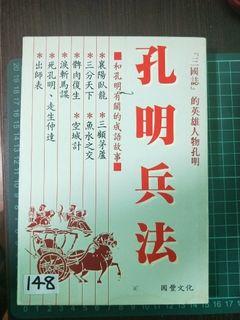 『三國誌』的英雄人物孔明
孔明兵法
■和孔明有關的成語故事■
＊襄陽臥龍 ＊三顧茅廬
＊三分天下 ＊魚水之交
＊髀肉復生 ＊空城計
＊淚斬馬謖
＊死孔明、走生仲達
＊出師表
國豐文化
148